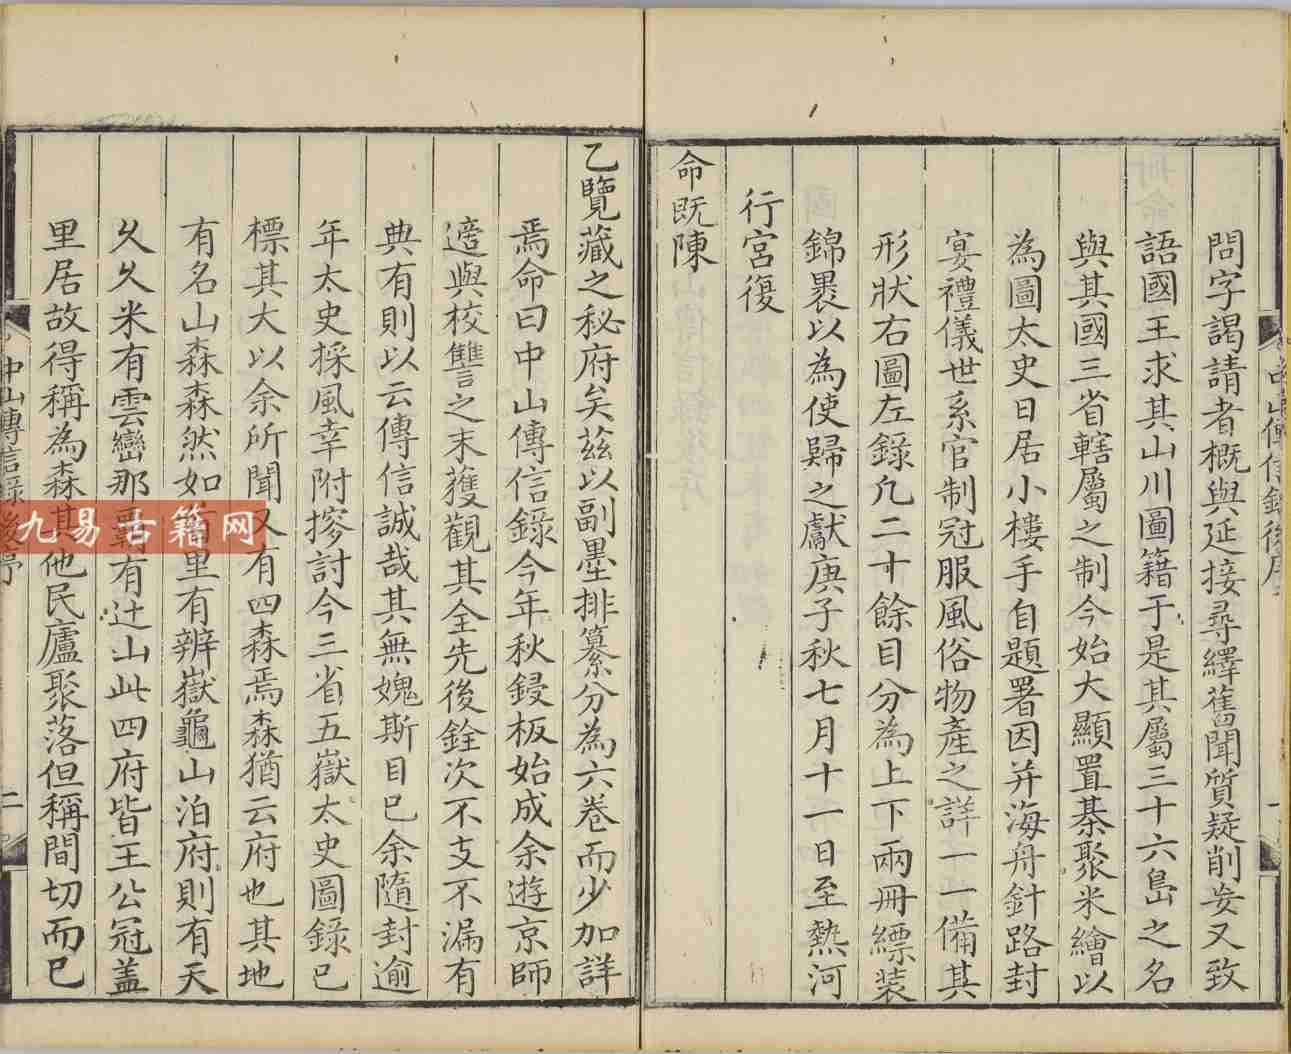 問字謁請者概與延接尋繹舊聞質疑削妄又致
語國王求其山川圖籍于是其屬三十六島之名
與其國三省轄屬之制今始大顯置棊聚米繪以
為圖太史日居小樓手自題署因并海舟針路封
宴禮儀世系官制冠服風俗物產之詳一一備其
形狀右圖左錄凡二十餘目分為上下兩冊縹裝
錦褁以為使歸之獻庚子秋七月十一日至熱河
行宮復
命既陳
乙覽藏之秘府矣茲以副墨排纂分為六卷而少加詳
焉命曰中山傳信錄今年秋鋟板始成余遊京師
適與校讐之末獲觀其全先後銓次不支不漏有
典有則以云傳信誠哉其無媿斯目已余隨封逾
年太史採風幸附摉討今三省五嶽太史圖錄已
標其大以余所聞又有四森焉森猶云府也其地
有名山森森然如里有辨嶽龜山泊府則有天
久久米有雲巒那霸有辻山此四府皆王公冠盖
里居故得稱為森其他民廬聚落但稱間切而已
中山傳信錄後序
二
九易古籍网